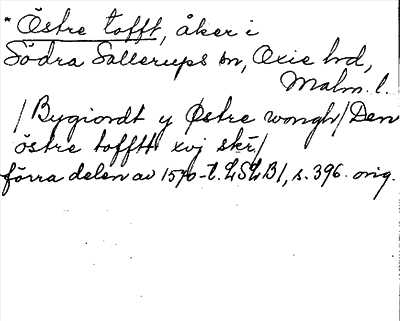 * Östre tofft, åker i
Södra Sallerups sn, Oxie hd,
Malm. l.
/Bygiordt y Østre wongh/Den
östre tofftt xvj skr/
förra delen av 1570-t. LSLB1, s. 396. orig.